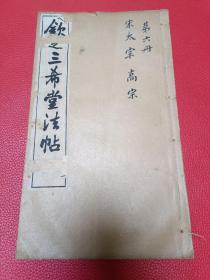 第六册
宋太宗 高宗
欽定三希堂法帖